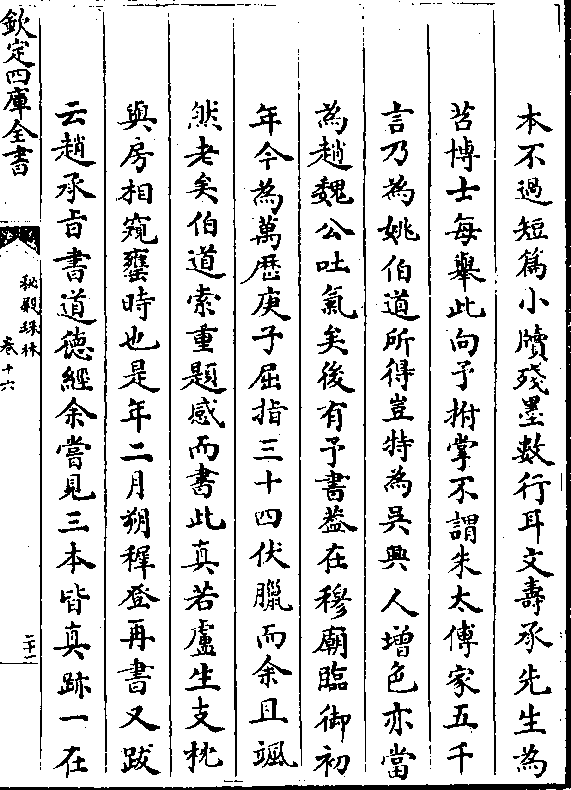 本不過短篇小牘殘墨數行耳文壽承先生為
苕博士每舉此向予拊掌不謂朱太傅家五千
言乃為姚伯道所得豈特為吳興人增色亦當
為趙魏公吐氣矣後有予書葢在穆廟臨御初
年今為萬歷庚子屈指三十四伏臘而余且颯
然老矣伯道索重題感而書此真若盧生支枕
與房相窺甕時也是年二月朔穉登再書又跋
云趙承旨書道德經余嘗見三本皆真跡一在
欽定四庫全書
秘殿珠林
卷十六
二十一